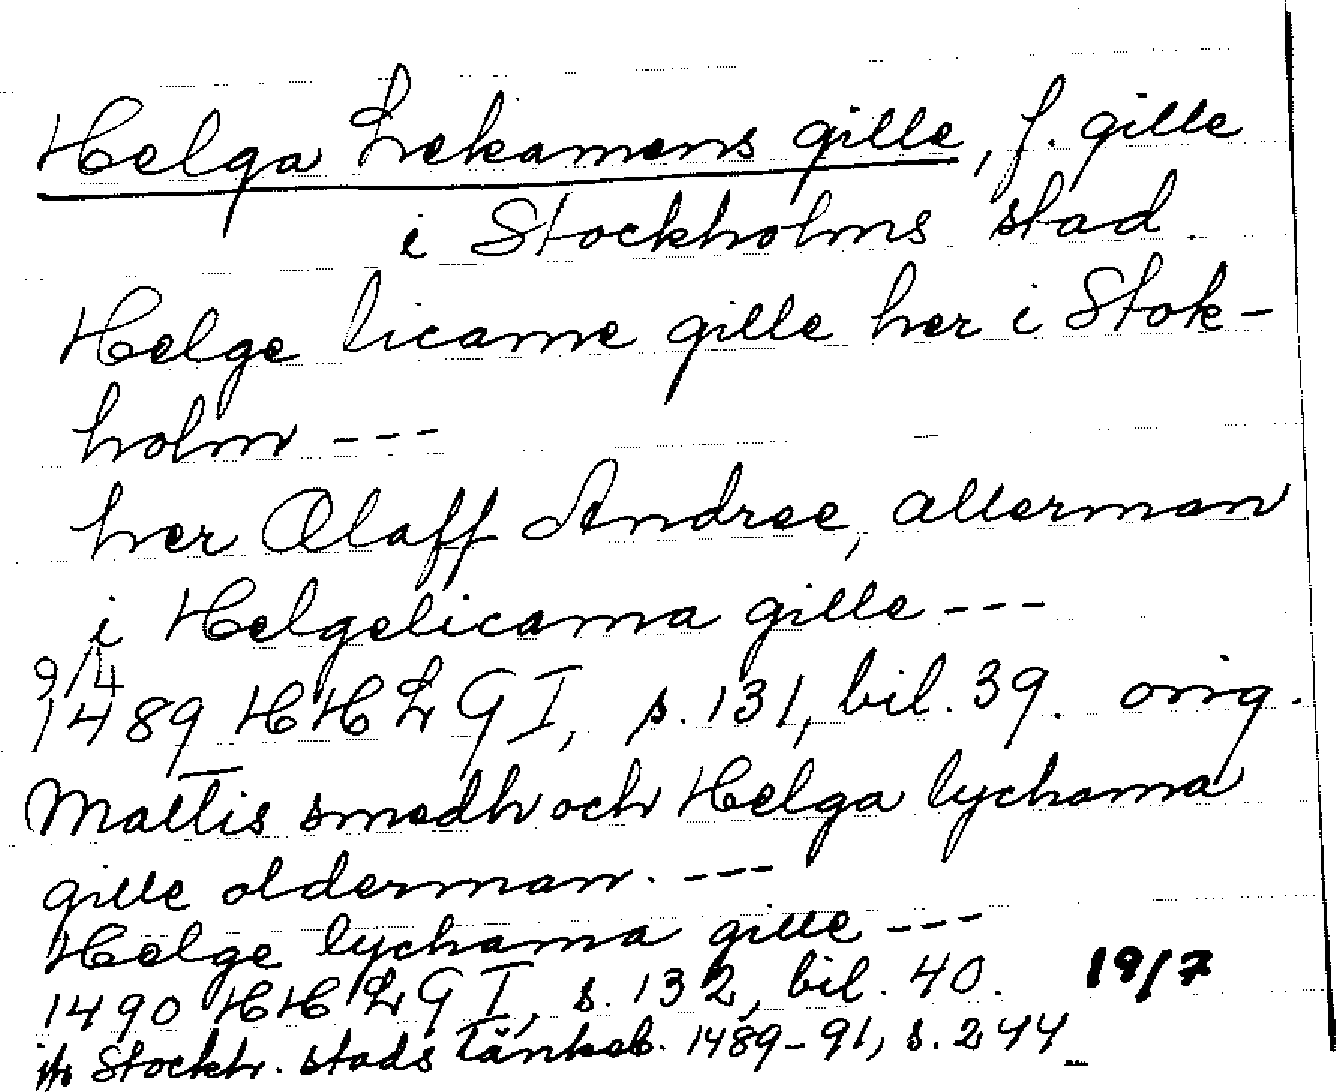 Helga Lekamens gille, f. gille
i Stockholms stad.
Helge licame gille her i Stok-
holm ---
her Olaff Andree, allerman
i Helgelicama gille ---
9/4
1489 HHLG I, s. 131, bil. 39. orig.
Mattis smedh och Helga lychama
gille olderman. ---
Helge lychama gille ---
1490 HHLG I, s. 132, bil. 40. 19/7
Stockh. stads tänkeb. 1489-91, s. 244